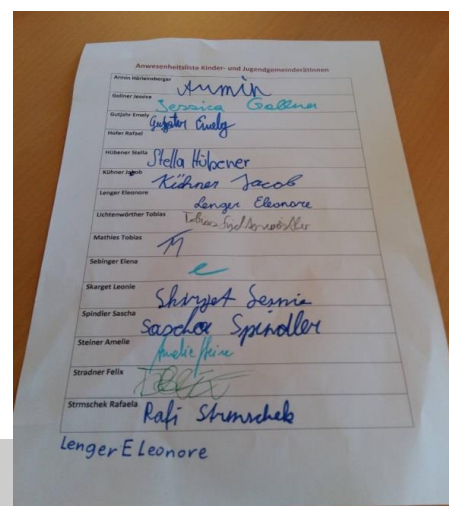 Anwesenheitsliste Kinder- und JugendgemeinderätInnen
Armin Härleinsberger Armin
Gollner Jessica Jessica Gollner
Gutjahr Emely Gutjahr Emely
Hofer Rafael
Hübener Stella Stella Hübener
Kühner Jacob Kühner Jacob
Lenger Eleonore Lenger Eleonore
Lichtenwörther Tobias Tobias
Mathies Tobias
Sebinger Elena e
Skarget Leonie
Spindler Sascha Sascha Spindler
Steiner Amelie Amelie
Stradner Felix
Strmschek Rafaela Rafi Strmschek
Lenger Eleonore